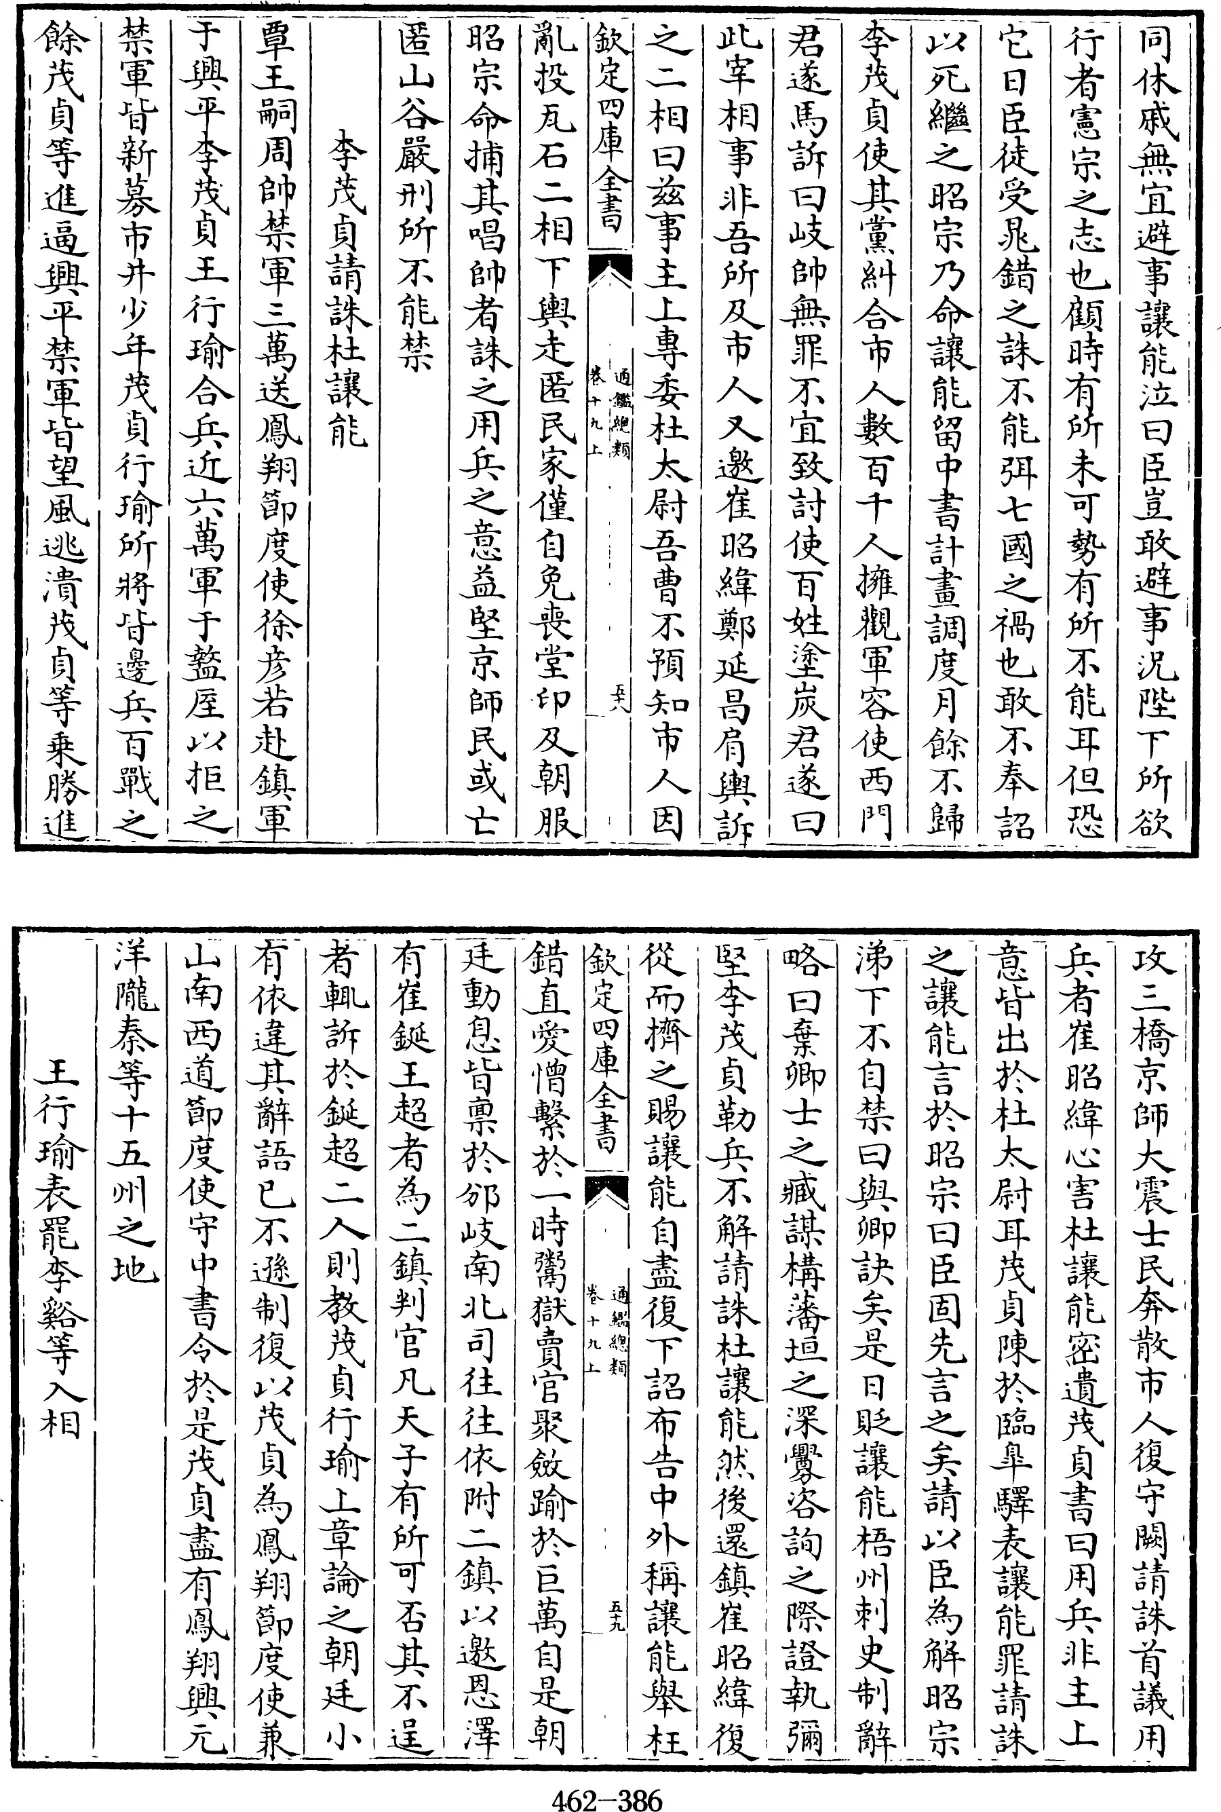 同休戚無宜避事讓能泣曰臣豈敢避事況陛下所欲
行者憲宗之志也顧時有所未可勢有所不能耳但恐
它日臣徒受晁錯之誅不能弭七國之禍也敢不奉詔
以死繼之昭宗乃命讓能留中書計畫調度月餘不歸
李茂貞使其黨糾合市人數百千人擁觀軍容使西門
君遂馬訴曰岐帥無罪不宜致討使百姓塗炭君遂曰
此宰相事非吾所及市人又邀崔昭緯鄭延昌肩輿訴
之二相曰兹事主上專委杜太尉吾曹不預知市人因
欽定四庫全書
通鑑總類
卷十九上
五十八
亂投瓦石二相下輿走匿民家僅自免喪堂印及朝服
昭宗命捕其唱帥者誅之用兵之意益堅京師民或亡
匿山谷嚴刑所不能禁
李茂貞請誅杜讓能
覃王嗣周帥禁軍三萬送鳳翔節度使徐彦若赴鎮軍
于興平李茂貞王行瑜合兵近六萬軍于盩厔以拒之
禁軍皆新募市井少年茂貞行瑜所將皆邊兵百戰之
餘茂貞等進逼興平禁軍皆望風逃潰茂貞等乗勝進
攻三橋京師大震士民奔散市人復守闕請誅首議用
兵者崔昭緯心害杜讓能密遺茂貞書曰用兵非主上
意皆出於杜太尉耳茂貞陳於臨臯驛表讓能罪請誅
之讓能言於昭宗曰臣固先言之矣請以臣為解昭宗
涕下不自禁曰與卿訣矣是日貶讓能梧州刺史制辭
略曰棄卿士之臧謀構藩垣之深釁咨詢之際證執彌
堅李茂貞勒兵不解請誅杜讓能然後還鎮崔昭緯復
從而擠之賜讓能自盡復下詔布告中外稱讓能舉枉
欽定四庫全書
通鑑總類
卷十九上
五十九
錯直愛憎繫於一時鬻獄賣官聚斂踰於巨萬自是朝
廷動息皆禀於邠岐南北司往往依附二鎮以邀恩澤
有崔鋋王超者為二鎮判官凡天子有所可否其不逞
者輒訴於鋋超二人則教茂貞行瑜上章論之朝廷小
有依違其辭語已不遜制復以茂貞為鳳翔節度使兼
山南西道節度使守中書令於是茂貞盡有鳳翔興元
洋隴秦等十五州之地
王行瑜表罷李谿等入相
462-386